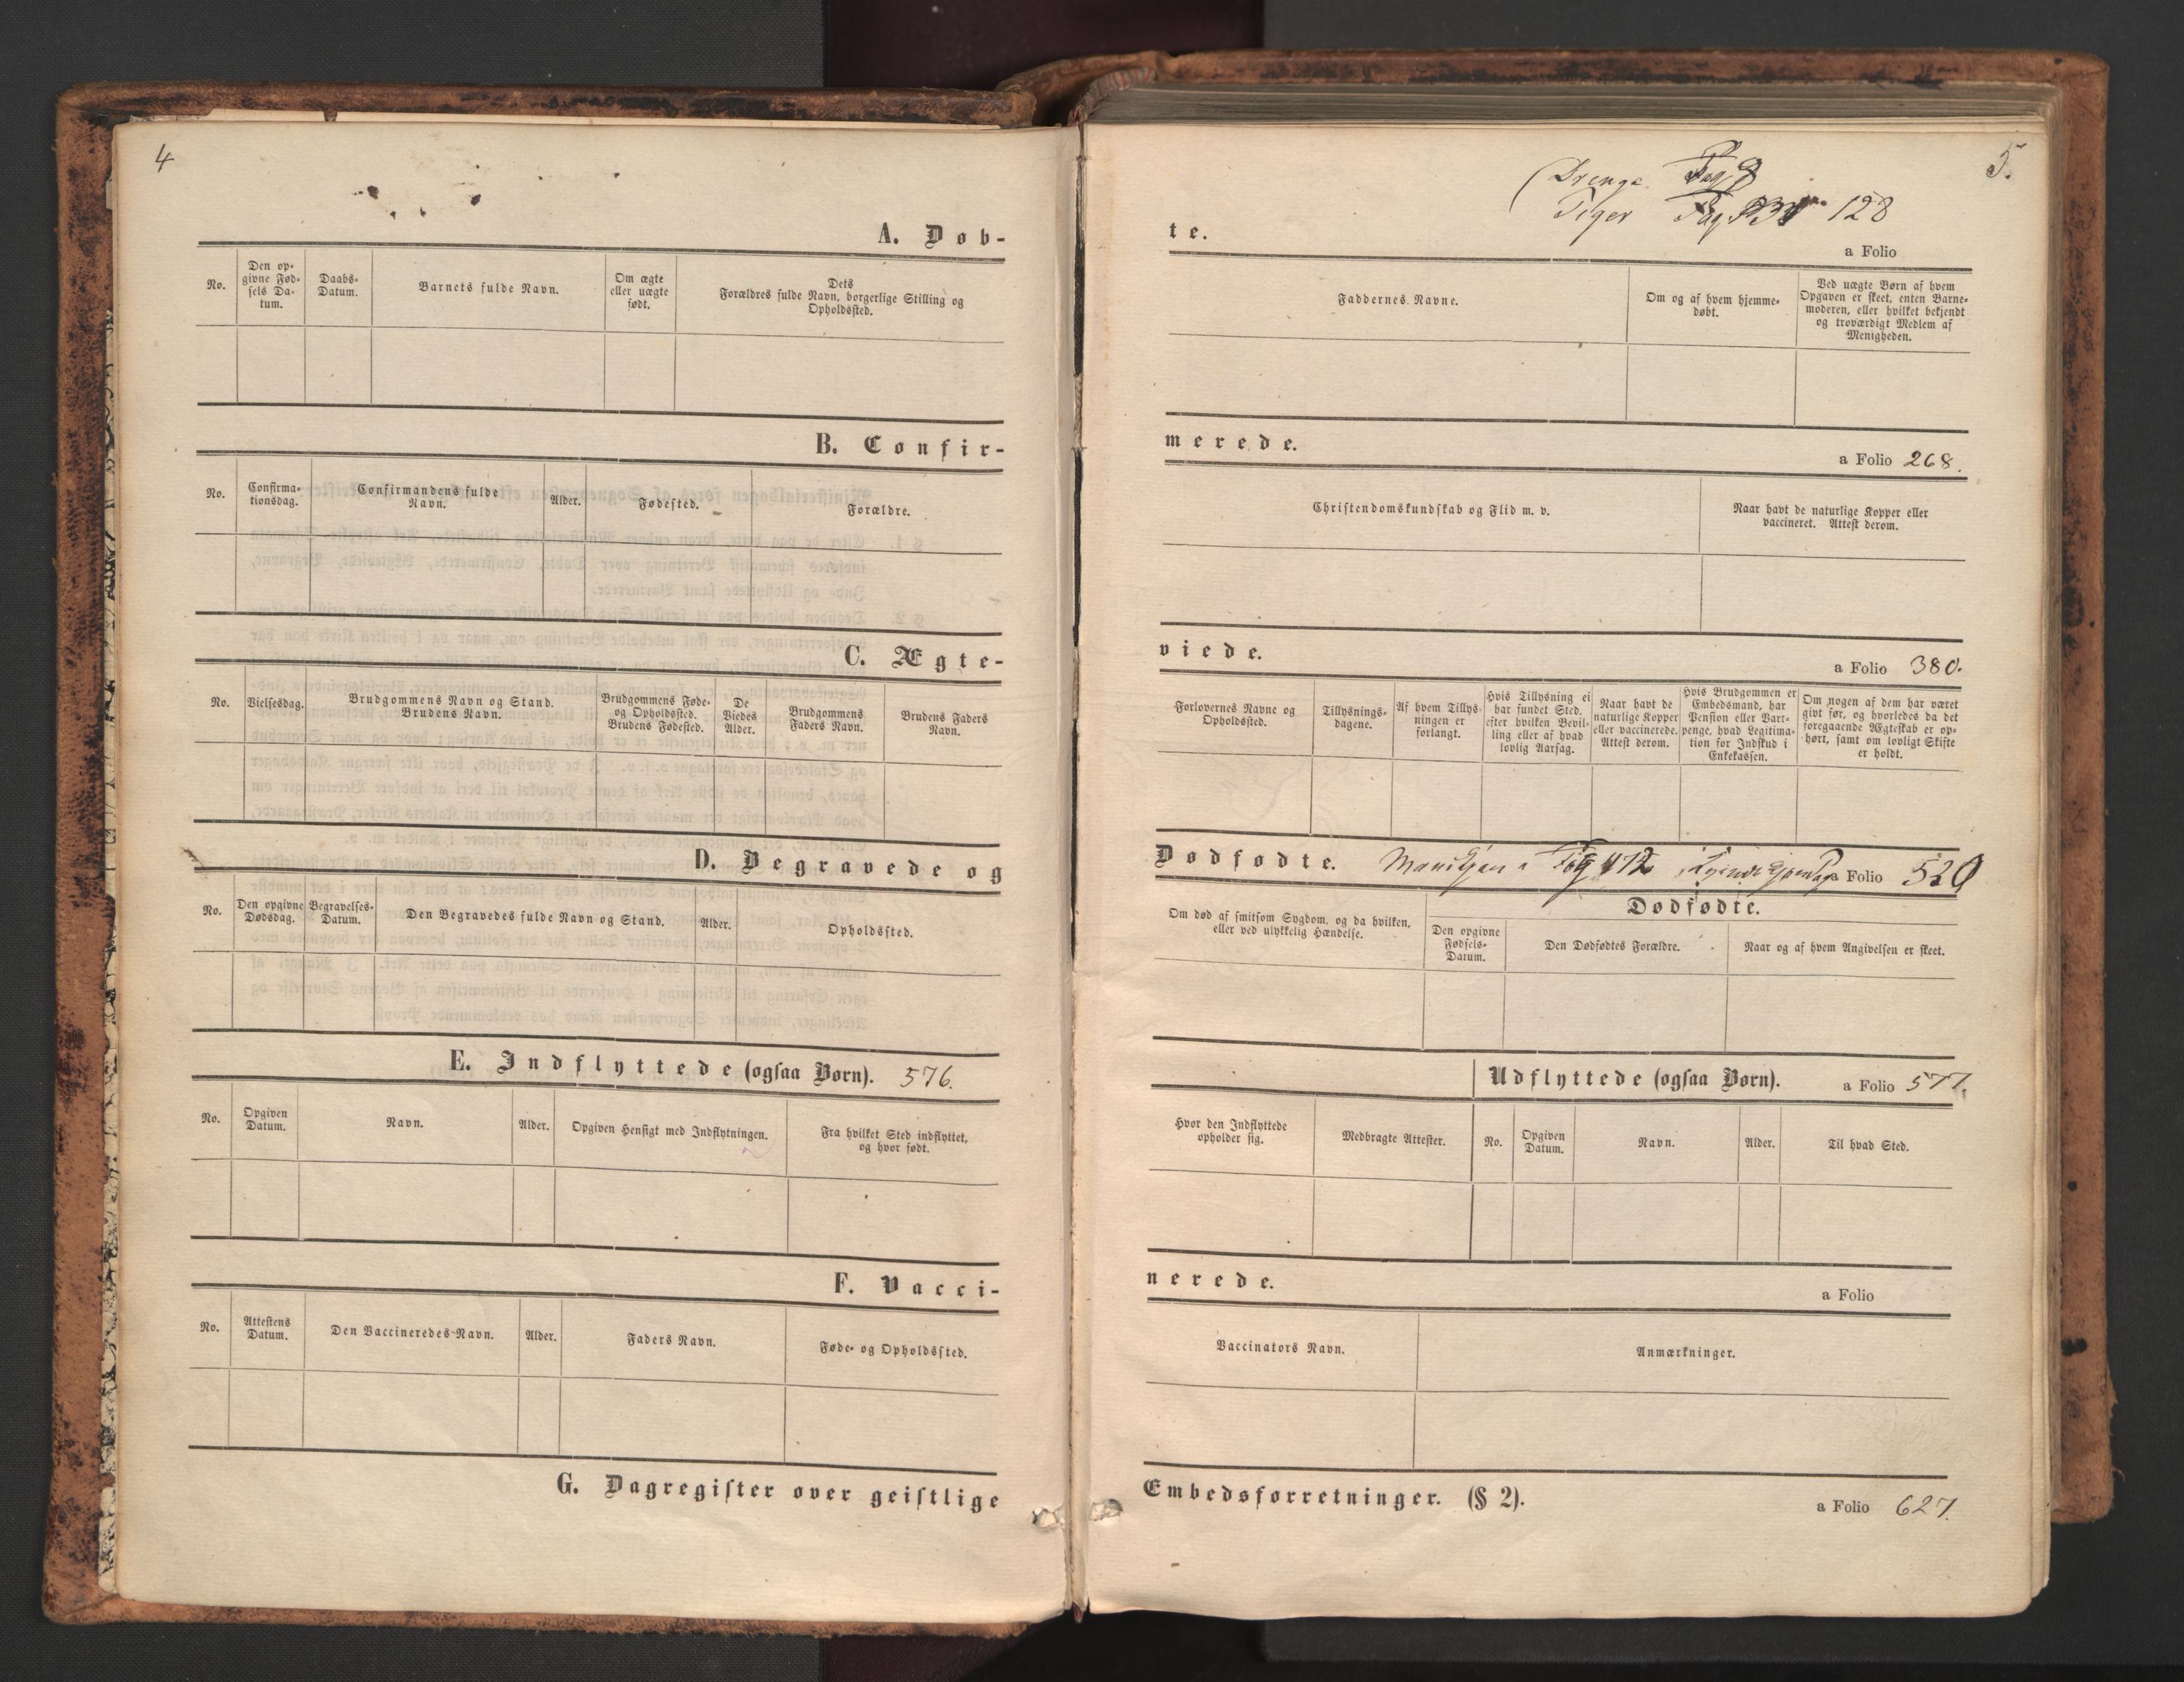 4
A. Døb-
No.
Den op-
givne Fød-
sels Da-
tum.
Daabs-
Datum.
Barnets fulde Navn.
Om ægte
eller uægte
født.
Dets
Forældres fulde Navn, borgerlige Stilling og
Opholdssted.
B. Confir-
No.
Confirma-
tionsdag.
Confirmandens fulde
Navn.
Alder.
Fødested.
Forældre.
C. Ægte-
No.
Vielsesdag.
Brudgommens Navn og Stand.
Brudens Navn.
Brudgommens Føde-
og Opholdssted.
Brudens Fødested.
De
Viedes
Alder.
Brudgommens
Faders Navn.
Brudens Faders
Navn.
D. Begravede og
No.
Den opgivne
Dødsdag.
Begravelses-
Datum.
Den Begravedes fulde Navn og Stand.
Alder.
Opholdssted.
E. Indflyttede (ogsaa Børn). 576.
No.
Opgiven
Datum.
Navn.
Alder.
Opgiven Hensigt med Indflytningen.
Fra hvilket Sted indflyttet,
og hvor født.
F. Vacci-
No.
Attestens
Datum.
Den Vaccineredes Navn.
Alder.
Faders Navn.
Føde- og Opholdssted.
G. Dagregister over geistlige
5.
Drenge Pag 8
Piger Pag 128
te.
a Folio
Faddernes Navne.
Om og af hvem hjemme-
døbt.
Ved uægte Børn af hvem
Opgaven er skeet, enten Barne-
moderen, eller hvilket bekjendt
og troværdigt Medlem af
Menigheden.
merede.
a Folio 268.
Christendomskundskab og Flid m. v.
Naar havt de naturlige Kopper eller
vaccineret. Attest derom.
viede.
a Folio 380.
Forlovernes Navne og
Opholdssted.
Tillysnings-
dagene.
Af hvem Tillys-
ningen er
forlangt.
Hvis Tillysning ei
har fundet Sted,
efter hvilken Bevil-
ling eller af hvad
lovlig Aarsag.
Naar havt de
naturlige Kopper
eller vaccinerede.
Attest derom.
Hvis Brudgommen er
Embedsmand, har
Pension eller Vart-
penge, hvad Legitima-
tion for Indskud i
Enkekassen.
Om nogen af dem har været
givt før, og hvorledes da det
foregaaende Ægteskab er op-
hørt, samt om lovligt Skifte
er holdt.
Dødfødte. Mandkjøn Pag 412 Kvindekjøn Pag a Folio 520
Om død af smitsom Sygdom, og da hvilken,
eller ved ulykkelig Hændelse.
Dødfødte.
Den opgivne
Fødsels-
Datum.
Den Dødfødtes Forældre.
Naar og af hvem Angivelsen er skeet.
Udflyttede (ogsaa Børn). a Folio 577.
Hvor den Indflyttede
opholder sig.
Medbragte Attester.
No.
Opgiven
Datum.
Navn.
Alder.
Til hvad Sted.
nerede.
a Folio
Vaccinators Navn.
Anmærkninger.
Embedsforretninger. (§ 2).
a Folio 627.